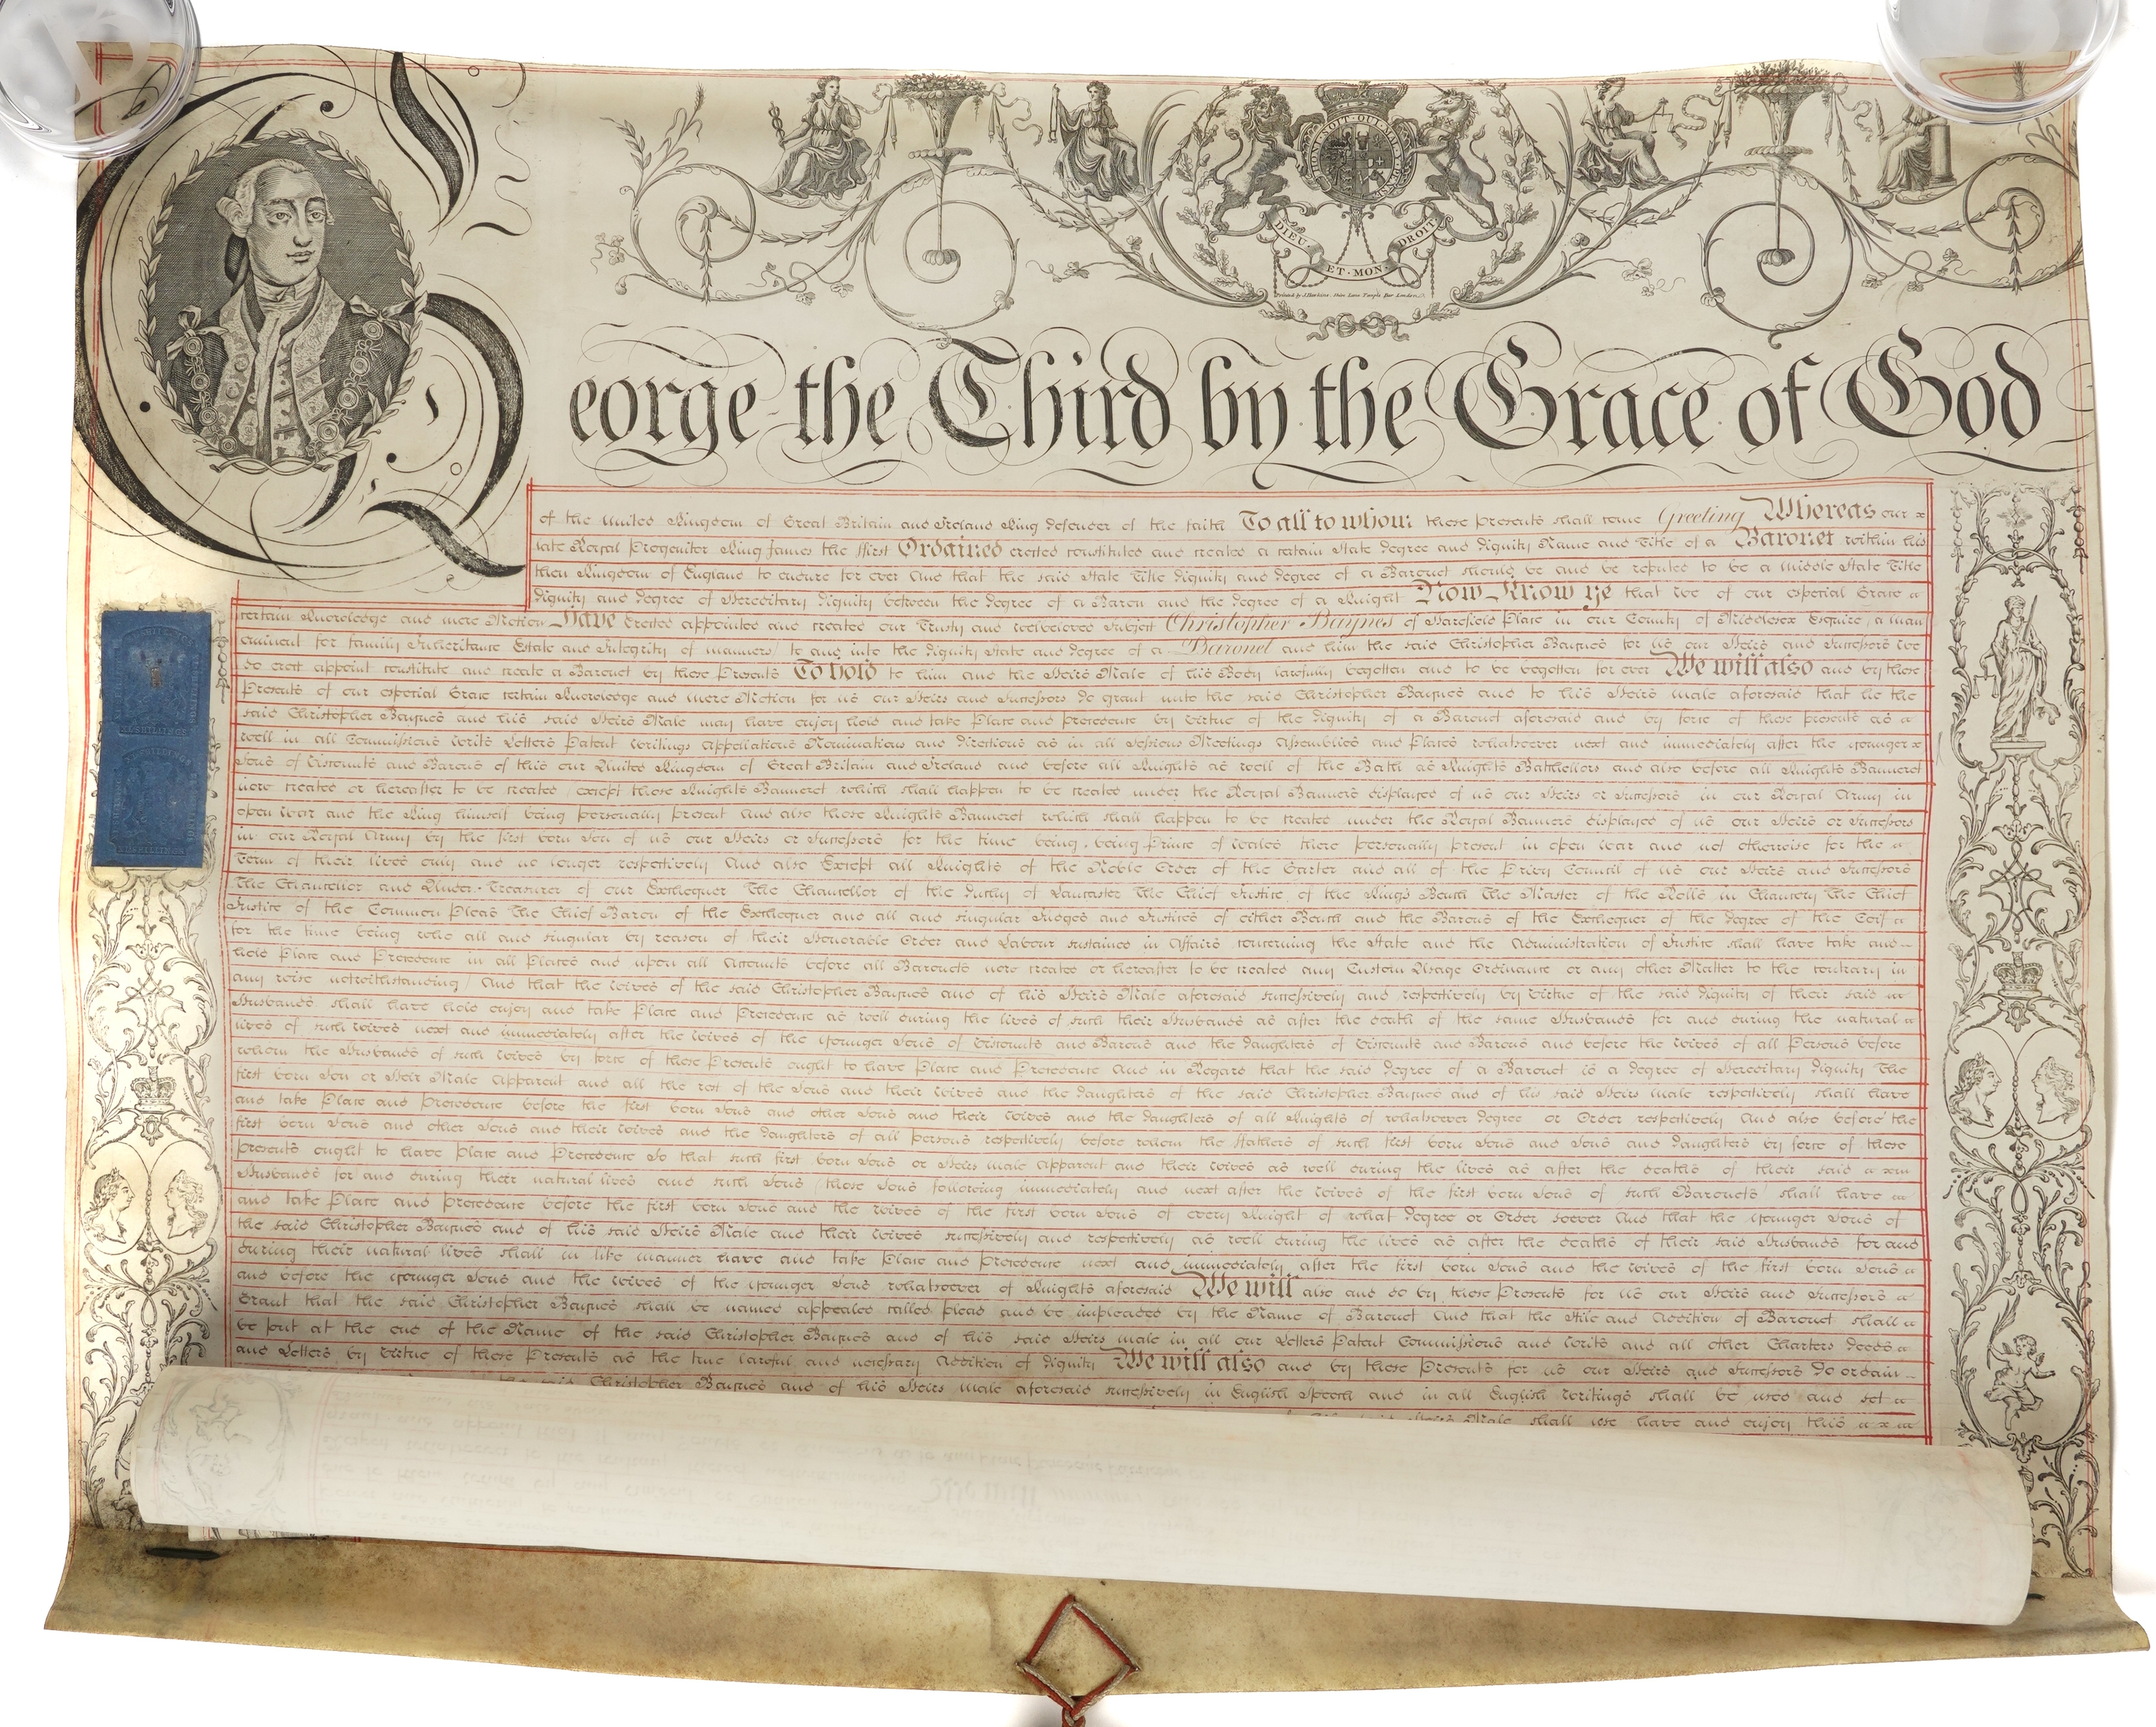 HONI·SOIT·QUI·MAL·Y·PENSE
DIEU ET·MON· DROIT
Printed by Skin Lane Temple Bar London
George the Third by the Grace of God
of the United Kingdom of Great Britain and Ireland King defender of the faith To all to whom these presents shall come Greeting Whereas our
late Royal Progenitor King James the ffirst Ordained erected constituted and created a certain State degree and dignity Name and Title of a Baronet within his
then Kingdom of England to endure for ever And that the said State Title dignity and degree of a Baronet should be and be reputed to be a middle State Title
dignity and degree of Hereditary dignity between the degree of a Baron and the degree of a Knight Now Know ye that we of our especial Grace
certain Knowledge and mere Motion Have erected appointed and created our Trusty and welbeloved Subject Christopher Baynes of Harefield Place in our County of Middlesex Esquire (a man
eminent for family Inheritance Estate and Integrity of manners) to and into the dignity State and degree of a Baronet and him the said Christopher Baynes for us our Heirs and Successors we
do erect appoint constitute and create a Baronet by these Presents To hold to him and the Heirs Male of his Body lawfully begotten and to be begotten for ever We will also and by these
Presents of our especial Grace certain Knowledge and mere Motion for us our Heirs and Successors do grant unto the said Christopher Baynes and to his Heirs male aforesaid that he the
said Christopher Baynes and his said Heirs Male may have enjoy hold and take Place and precedence by virtue of the dignity of a Baronet aforesaid and by force of these presents as
well in all Commissions Writs Letters Patent Writings Appellations Nominations and directions as in all Sessions Meetings Assemblies and Places whatsoever next and immediately after the younger
Sons of Viscounts and Barons of this our United Kingdom of Great Britain and Ireland and before all Knights as well of the Bath as Knights Batchellors and also before all Knights Banneret
now created or hereafter to be created (except those Knights Banneret which shall happen to be created under the Royal Banners displayed of us our Heirs or Successors in our Royal Army in
open war and the King himself being personally present And also those Knights Banneret which shall happen to be created under the Royal Banners displayed of us our Heirs or Successors
in our Royal Army by the first born Son of us our Heirs or Successors for the time being, being Prince of Wales there personally present in open war and not otherwise for the
Term of their lives only and no longer respectively And also Except all Knights of the Noble Order of the Garter and all of the Privy Council of us our Heirs and Successors
The Chancellor and Under-Treasurer of our Exchequer The Chancellor of the Duchy of Lancaster The Chief Justice of the Kings Bench The Master of the Rolls in Chancery The Chief
Justice of the Common Pleas The Chief Baron of the Exchequer and all and singular Judges and Justices of either Bench and the Barons of the Exchequer of the degree of the Coif
for the time being who all and singular by reason of their Honorable Order and Labour sustained in Affairs concerning the State and the Administration of Justice shall have take and
hold Place and Precedence in all Places and upon all Accounts before all Baronets now created or hereafter to be created any Custom Usage Ordinance or any other Matter to the contrary in
any wise notwithstanding) And that the wives of the said Christopher Baynes and of his Heirs Male aforesaid successively and respectively by virtue of the said dignity of their said
Husbands shall have hold enjoy and take Place and Precedence as well during the lives of such their Husbands as after the death of the same Husbands for and during the natural
lives of such wives next and immediately after the wives of the younger Sons of Viscounts and Barons and the daughters of Viscounts and Barons and before the wives of all Persons before
whom the Husbands of such wives by force of these Presents ought to have Place and Precedence And in Regard that the said degree of a Baronet is a degree of Hereditary dignity The
first born Son or Heir Male Apparent and all the rest of the Sons and their wives and the daughters of the said Christopher Baynes and of his said Heirs male respectively shall have
and take Place and Precedence before the first born Sons and other Sons and their wives and the daughters of all Knights of whatsoever degree or Order respectively And also before the
first born Sons and other Sons and their wives and the daughters of all persons respectively before whom the ffathers of such first born Sons and Sons and daughters by force of these
presents ought to have Place and Precedence So that such first born Sons or Heirs male apparent and their wives as well during the lives as after the deaths of their said
Husbands for and during their natural lives and such Sons (those Sons following immediately and next after the wives of the first born Sons of such Baronets) shall have
and take Place and precedence before the first born Sons and the wives of the first born Sons of every Knight of what degree or Order soever And that the younger Sons of
the said Christopher Baynes and of his said Heirs Male and their wives successively and respectively as well during the lives as after the deaths of their said Husbands for and
during their natural lives shall in like manner have and take Place and Precedence next and immediately after the first born Sons and the wives of the first born Sons
and before the younger Sons and the wives of the younger Sons whatsoever of Knights aforesaid We will also and do by these Presents for us our Heirs and Successors
Grant that the said Christopher Baynes shall be named appealed called plead and be impleaded by the Name of Baronet And that the Stile and Addition of Baronet shall
be put at the end of the Name of the said Christopher Baynes and of his said Heirs male in all our Letters Patent Commissions and writs and all other Charters deeds
and Letters by virtue of these Presents as the true lawful and necessary Addition of dignity We will also and by these Presents for us our Heirs and Successors do ordain
the said Christopher Baynes and of his Heirs male aforesaid successively in English Speech and in all English writings shall be used and set
said Heirs Male shall use have and enjoy this